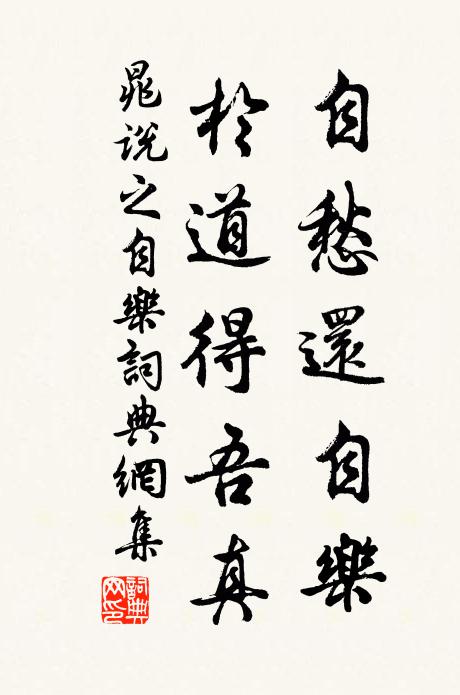 自愁還自樂
於道得吾真
晁説之自樂詞典網集
詞典網印